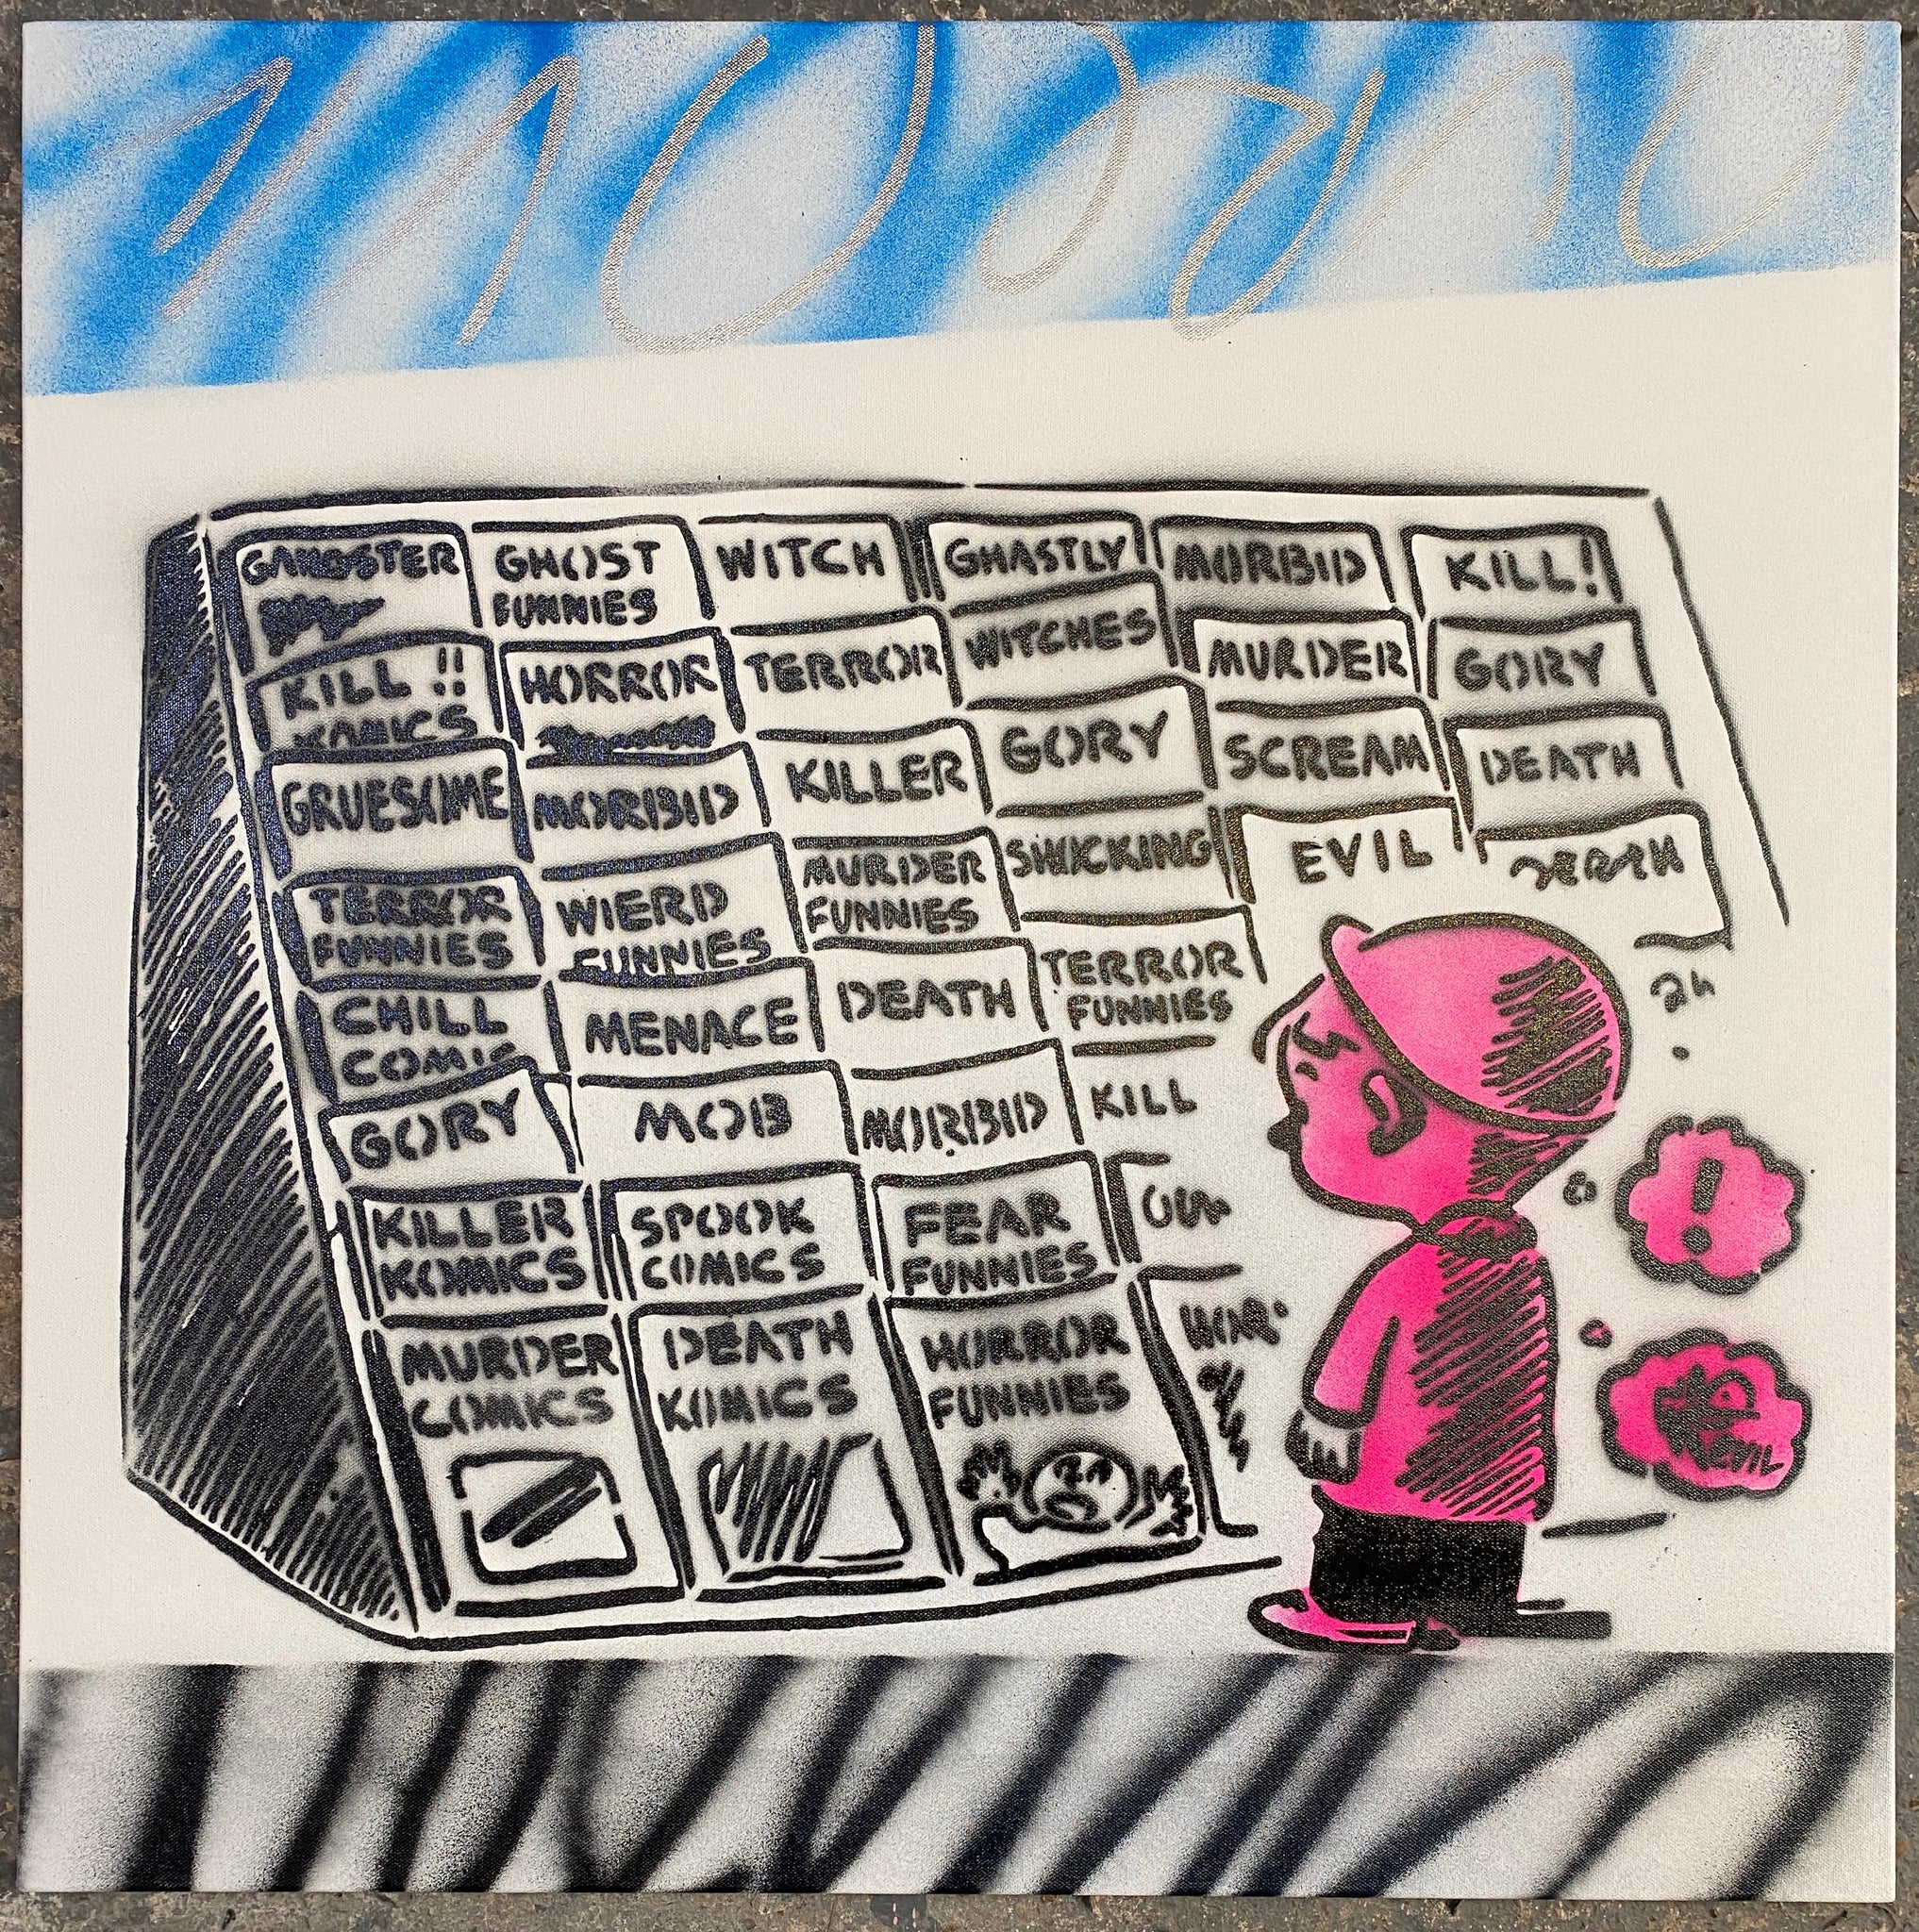 GANGSTER
GHOST
FUNNIES
WITCH
GHASTLY
MORBID
KILL!
KILL !!
KOMICS
HORROR
TERROR
WITCHES
MURDER
GORY
GRUESOME
MORBID
KILLER
GORY
SCREAM
DEATH
TERROR
FUNNIES
WIERD
FUNNIES
MURDER
FUNNIES
SHOCKING
EVIL
CHILL
COMIC
MENACE
DEATH
TERROR
FUNNIES
GORY
MOB
MORBID
KILL
KILLER
KOMICS
SPOOK
COMICS
FEAR
FUNNIES
!
MURDER
COMICS
DEATH
KOMICS
HORROR
FUNNIES